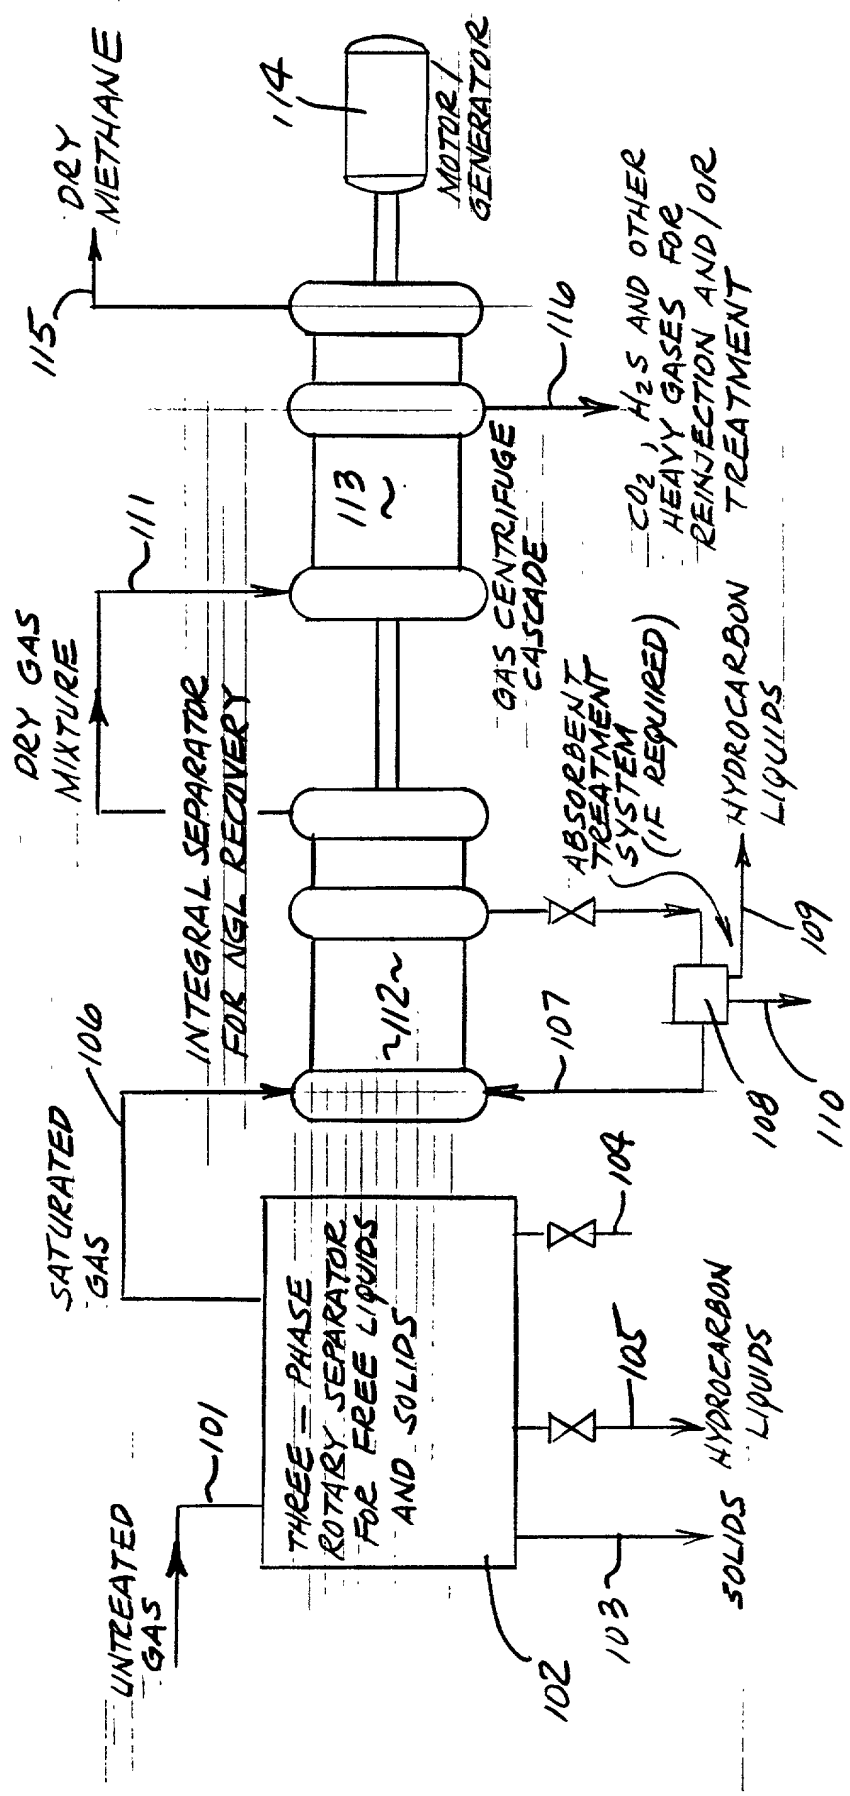 UNTREATED
GAS
101
THREE-PHASE
ROTARY SEPARATOR
FOR FREE LIQUIDS
AND SOLIDS
102
103
SOLIDS
105
HYDROCARBON
LIQUIDS
104
SATURATED
GAS
106
INTEGRAL SEPARATOR
FOR NGL RECOVERY
~112~
107
108
110
109
HYDROCARBON
LIQUIDS
ABSORBENT
TREATMENT
SYSTEM
(IF REQUIRED)
DRY GAS
MIXTURE
111
113
~
GAS CENTRIFUGE
CASCADE
116
CO2, H2S AND OTHER
HEAVY GASES FOR
REINJECTION AND/OR
TREATMENT
115
DRY
METHANE
114
MOTOR/
GENERATOR